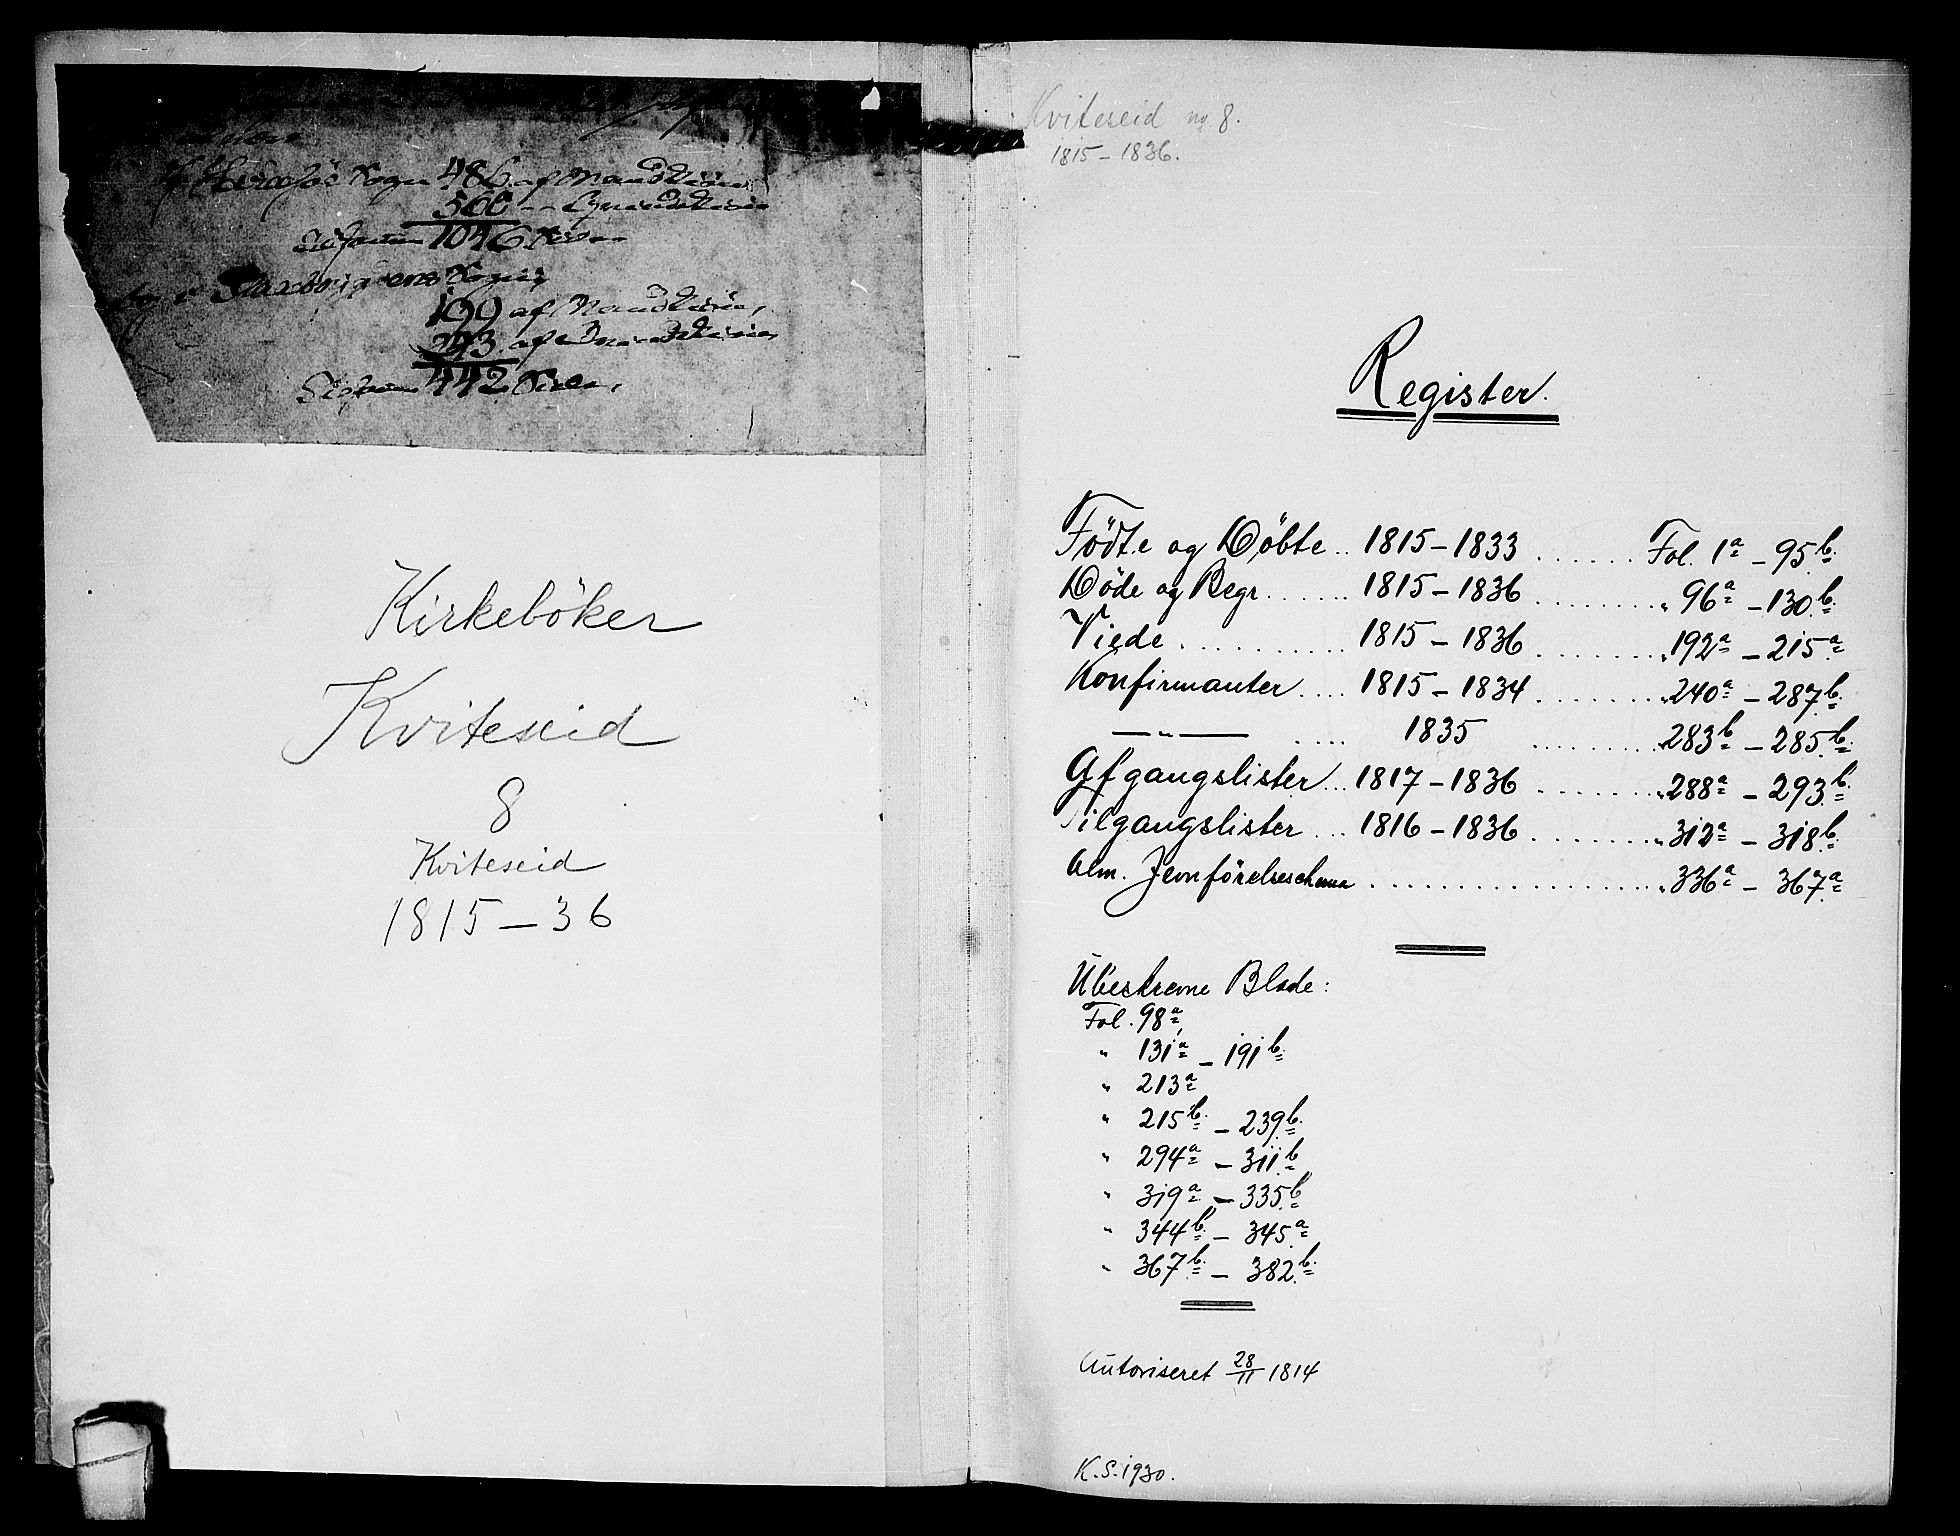 Sogn 486 af Mandkiön
560 --
1046
Sogn
199 af Mandkiön,
243 af
442
Kirkeböker
Kviteseid
8
Kviteseid
1815 – 36
Kviteseid no 8.
1815 – 1836.
Register.
Födte og Döbte .. 1815 – 1833 ...... Fol. 1a – 95b.
Döde og Begr. ...... 1815 – 1836 ........ " 96a – 130b.
Viede .......... 1815 – 1836 ....... " 192a – 215a
Konfirmanter .... 1815 – 1834 ....... " 240a – 287b.
— " — .... 1835 ........ " 283b – 285b.
Afgangslister ... 1817 – 1836 ....... " 288a – 293b.
Tilgangslister ... 1816 – 1836 ....... " 312a – 318b.
Alm. Jevnförelseschema .................. " 336a – 367a
Ubeskrevne Blade:
Fol. 98a
" 131a – 191b.
" 213a
" 215b. – 239b.
" 294a – 311b.
" 319a – 335b.
" 344b. – 345a
" 367b. – 382b.
Autoriseret 28/11 1814
K.S. 1930.